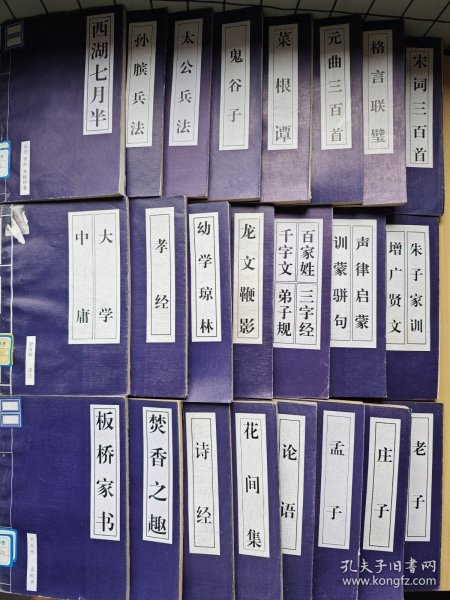 西湖七月半
孙膑兵法
太公兵法
鬼谷子
菜根谭
元曲三百首
格言联璧
宋词三百首
大学
中庸
孝经
幼学琼林
龙文鞭影
百家姓 三字经
千字文 弟子规
声律启蒙
训蒙骈句
朱子家训
增广贤文
板桥家书
焚香之趣
诗经
花间集
论语
孟子
庄子
老子
孔夫子旧书网
www.kongfz.com